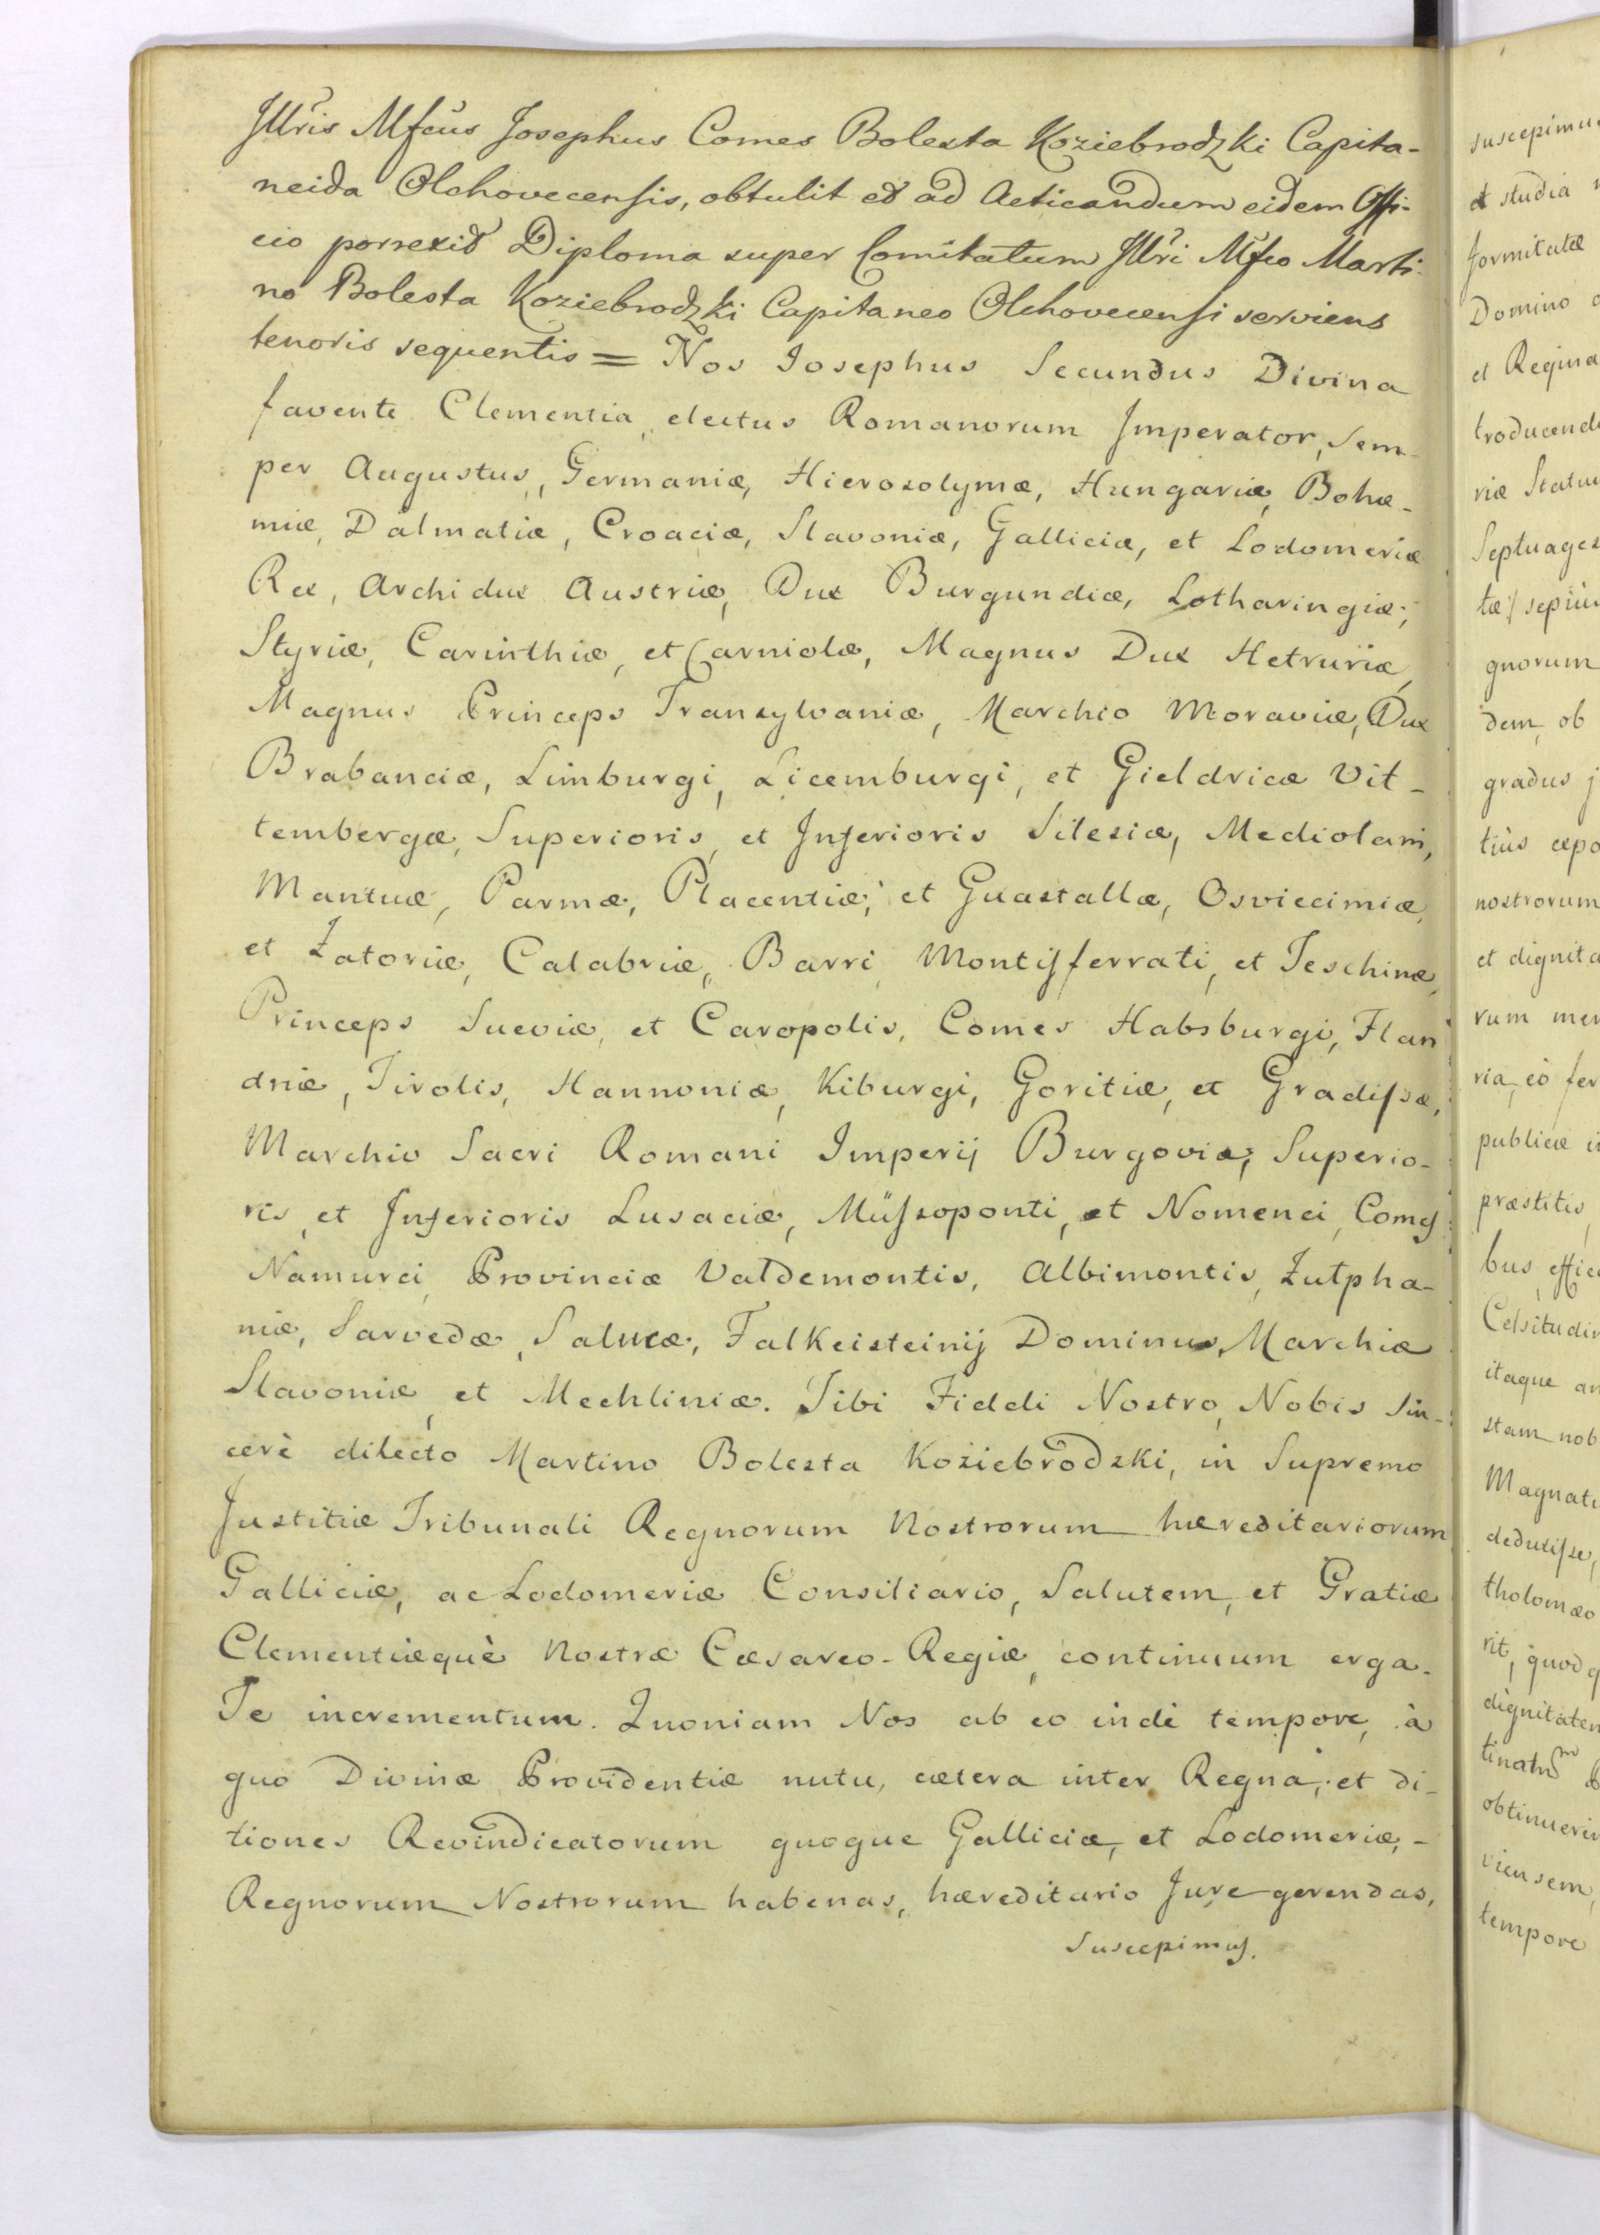 Jllris Mfcus Josephus Comes Bolesta Koziebrodzki Capita-
neida Olchovecensis, obtulit et ad Acticandum eidem Offi-
cio porrexit Diploma super Comitatum Jllri Mfco Marti-
no Bolesta Koziebrodzki Capitaneo Olchovecensi serviens
tenoris sequentis = Nos Josephus Secundus Divina
favente Clementia, electus Romanorum Jmperator, Sem-
per Augustus, Germaniæ, Hierosolymæ, Hungariæ, Bohæ-
miæ, Dalmatiæ, Croaciæ, Slavoniæ, Galliciæ, et Lodomeriæ
Rex, Archidux Austriæ, Dux Burgundiæ, Lotharingiæ,
Styriæ, Carinthiæ, et Carniolæ, Magnus Dux Hetruriæ,
Magnus Princeps Transylvaniæ, Marchio Moraviæ, Dux
Brabanciæ, Limburgi, Licemburgi, et Gieldricæ Vit-
tembergæ, Superioris, et Jnferioris Silesiæ, Mediolani,
Mantuæ, Parmæ, Placentiæ, et Guastallæ, Osviecimiæ,
et Zatoriæ, Calabriæ, Barri, Montisferrati, et Teschinæ,
Princeps Sueviæ, et Caropolis, Comes Habsburgi, Flan
driæ, Tirolis, Hannoniæ, Kiburgi, Goritiæ, et Gradissæ,
Marchio Sacri Romani Imperij Burgoviæ, Superio-
ris, et Jnferioris Lusaciæ, Müssoponti, et Nomenci, Comes
Namurci, Provinciæ Valdemontis, Albimontis, Zutpha-
niæ, Sarvedæ, Salmæ, Falkeisteinij Dominus, Marchiæ
Slavoniæ, et Mechliniæ. Tibi Fideli Nostro, Nobis Sin-
cerè dilecto Martino Bolesta Koziebrodzki, in Supremo
Justitiæ Tribunali Regnorum Nostrorum hæreditariorum
Galliciæ, ac Lodomeriæ Consiliario, Salutem, et Gratiæ
Clementiæquè Nostræ Cæsareo-Regiæ, continuum erga-
Te incrementum. Quoniam Nos ab eo indè tempore, à
quo Divinæ Providentiæ nutu, cætera inter Regna, et di-
tiones Revindicatorum quoque Galliciæ, et Lodomeriæ, -
Regnorum Nostrorum habenas, hæreditario Jure gerendas,
Suscepimus.
suscepimus
et studia
formitatæ
Domino
et Regina
troducend
riæ Statu
Septuages
gnorum
dem, ob
gradus
nostrorum
et dignita
rum mer
ria, eò fer
publicæ
præstitis,
bus, effic
Celsitudin
itaque
stam nob
Magnat
dedutisse,
tholomæo
rit, quod
dignitatem
obtinuerin
viensem,
tempore